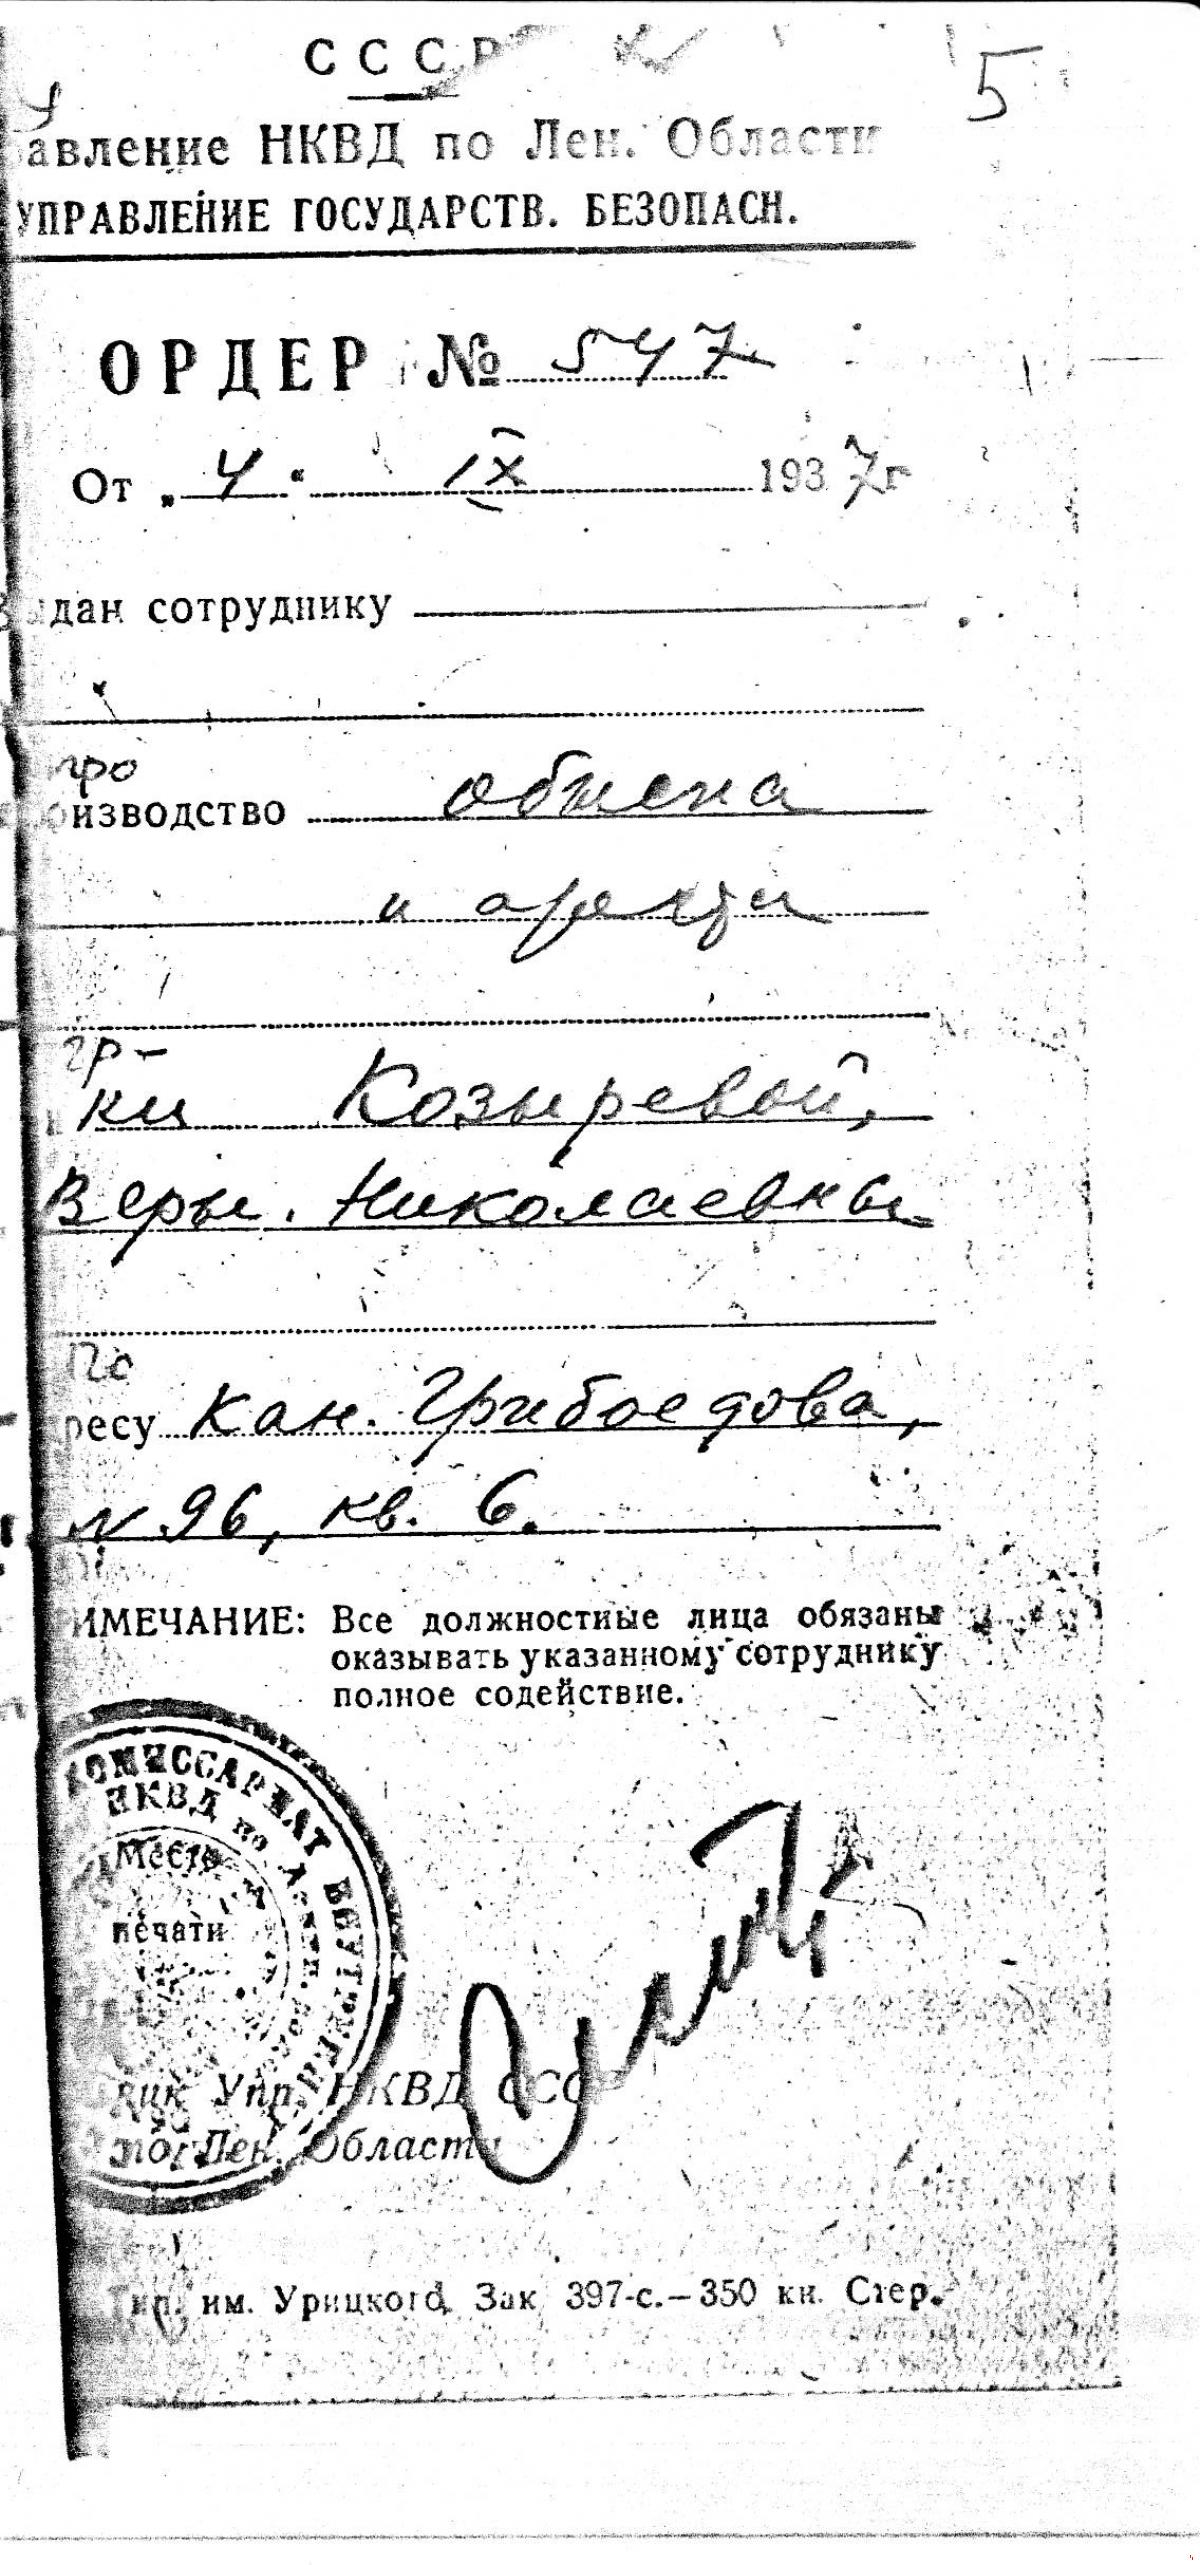 СССР
5
У
авление НКВД по Лен. Области
УПРАВЛЕНИЕ ГОСУДАРСТВ. БЕЗОПАСН.
ОРДЕР № 547
От „4“ IX 1937г
Выдан сотруднику
про
оизводство обыска
и ареста
гр-
ки Козыревой,
Веры Николаевны
По
ресу Кан. Грибоедова,
N 96, кв. 6.
ИМЕЧАНИЕ: Все должностные лица обязаны
оказывать указанному сотруднику
полное содействие.
КОМИССАРИАТ ВНУТРЕНН
НКВД по Ленин.
Место
печати
ник Упр. НКВД СССР
по Лен. Области
Тип. им. Урицкого. Зак 397-с.—350 кн. Стер.